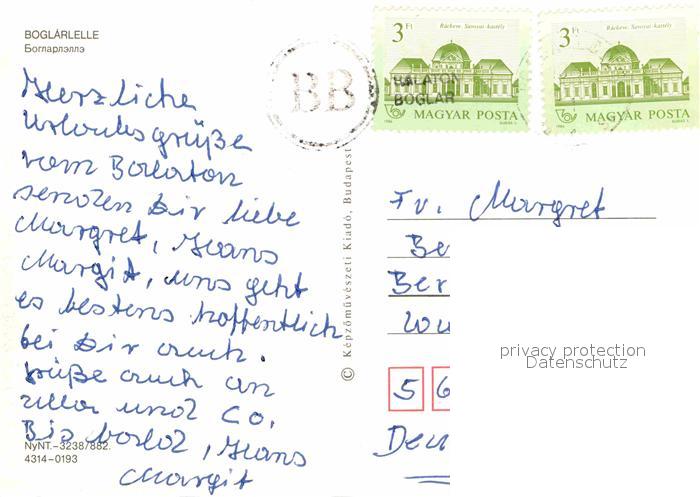 BOGLÁRLELLE
Богларлэллэ
Herzliche
Urlaubsgrüße
vom Balaton
senden Dir liebe
Margret, Hans
Margit, uns geht
es bestens hoffentlich
bei Dir auch.
Grüße auch an
und Co.
Bis bald, Hans
Margit
NyNT.-3238/882.
4314-0193
© Képzőművészeti Kiadó, Budapest
BB
BALATON
BOGLÁR
3 Ft
Ráckeve, Savoyai-kastély
MAGYAR POSTA
3 Ft
Ráckeve, Savoyai-kastély
MAGYAR POSTA
Fr. Margret
Be
Ber
Wu
privacy protection
Datenschutz
5 6
Deu